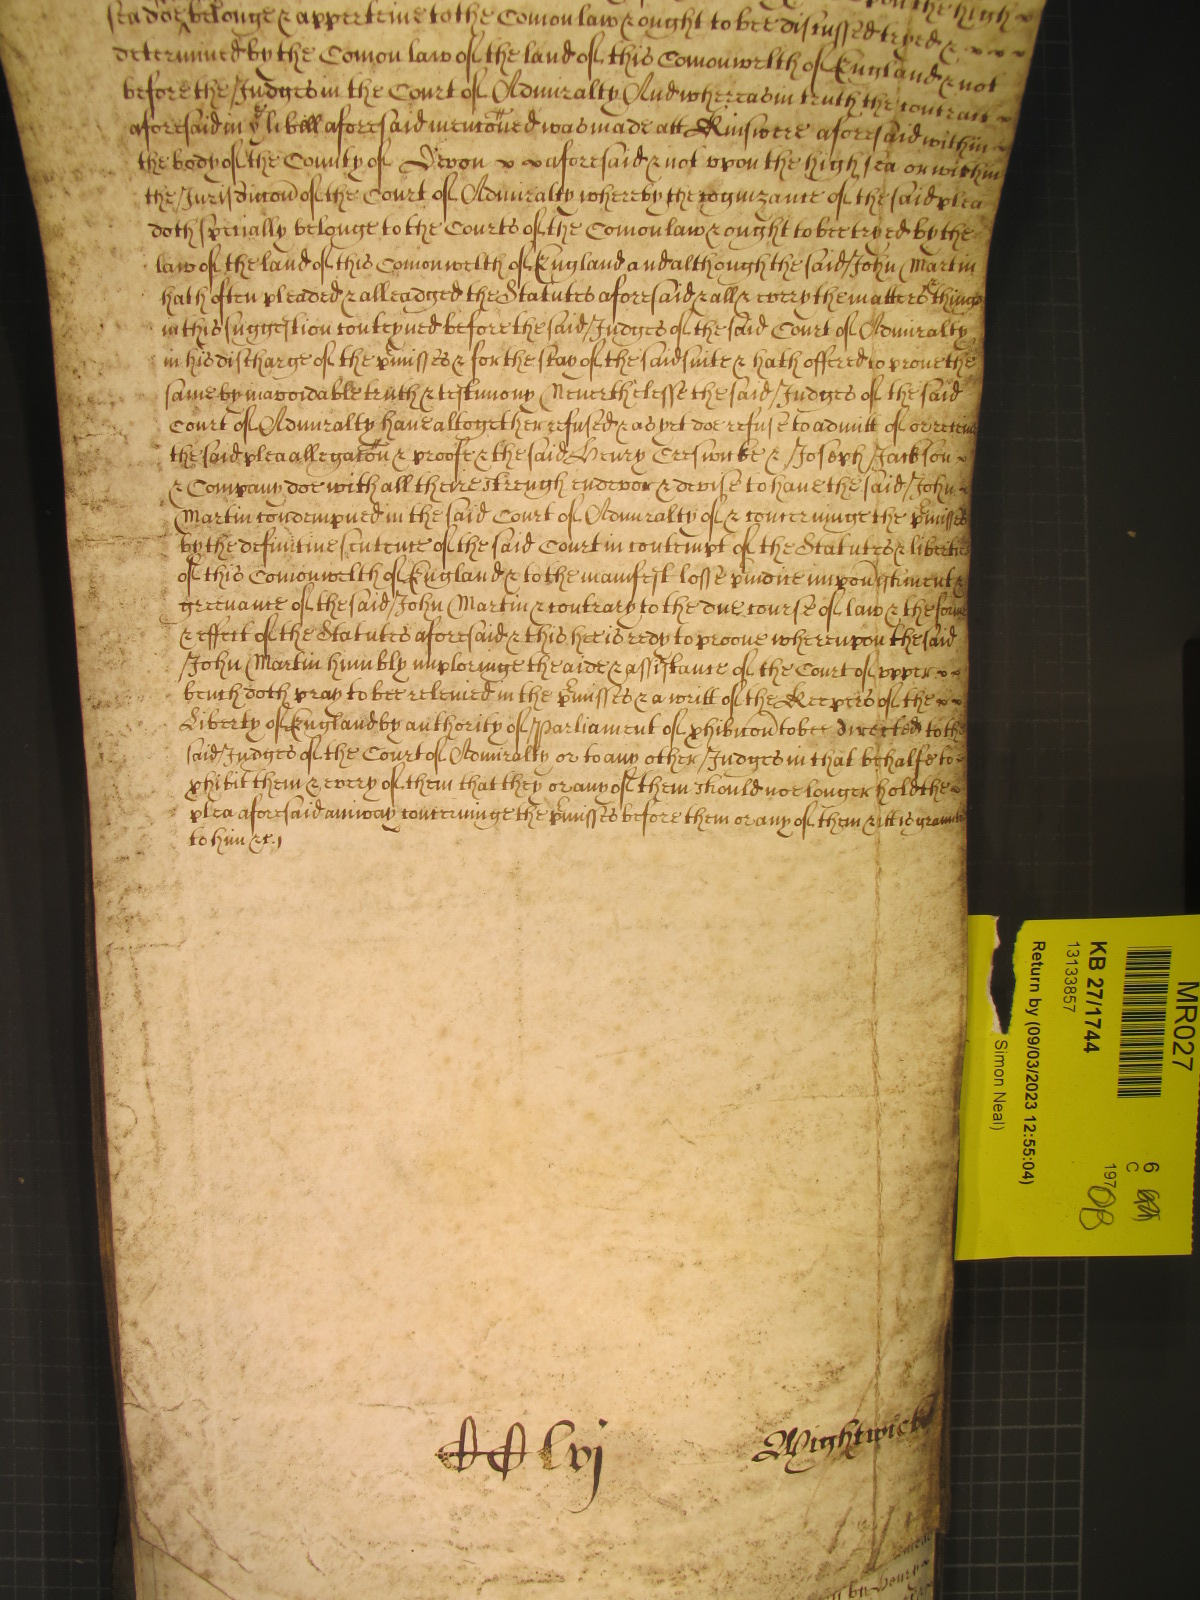 sea doe belonge & apperteine to the Comon law & ought to bee discussed tryed & upon the high
determined by the Comon law of the land of this Comonwelth of England & not
before the Judges in the Court of Admiralty And whereas in truth the contract
aforesaid in ye libell aforesaid mencõned was made att Kinswere aforesaid within
the body of the County of Devon aforesaid & not upon the high sea or within
the Jurisdiccõn of the Court of Admiralty whereby the cognizance of the said plea
doth specially belonge to the Courts of the Comon law & ought to bee tryed by the
law of the land of this Comonwelth of England and although the said John Martin
hath often pleaded & alleadged the Statutes aforesaid & all & every the matters & things
in this suggestion conteyned before the said Judges of the said Court of Admiralty
in his discharge of the pmisses & for the stay of the said suite & hath offered to prove the
same by inavoidable truth & testimony Neverthelesse the said Judges of the said
Court of Admiralty have altogether refused & as yet doe refuse to admitt of or receive
the said plea allegacõn & proofe & the said Henry Creswicke & Joseph Jackson
& Company doe with all theire strength endevor & devise to have the said John
Martin condempned in the said Court of Admiralty of & concerninge the pmisses
by the definitive sentence of the said Court in contempt of the Statutes & liberties
of this Comonwelth of England & to the manifest losse piudice impoũishment &
greevance of the said John Martin & contrary to the due course of law & the forme
& effect of the Statutes aforesaid & this hee is redy to proove whereupon the said
John Martin humbly imploringe the aide & assistance of the Court of upper
bench doth pray to bee releived in the pmisses & a writt of the Keepers of the
Liberty of England by authority of Parliament of phibicõn to bee directed to the
said Judges of the Court of Admiralty or to any other Judges in that behalfe to
phibit them & every of them that they or any of them should noe longer hold the
plea aforesaid anyway concerninge the pmisses before them or any of them & itt is graunted
to him &c.
lvj
Wightwick
MR027
KB 27/1744
13133857
Return by (09/03/2023 12:55:04)
Simon Neal)
6
C
197